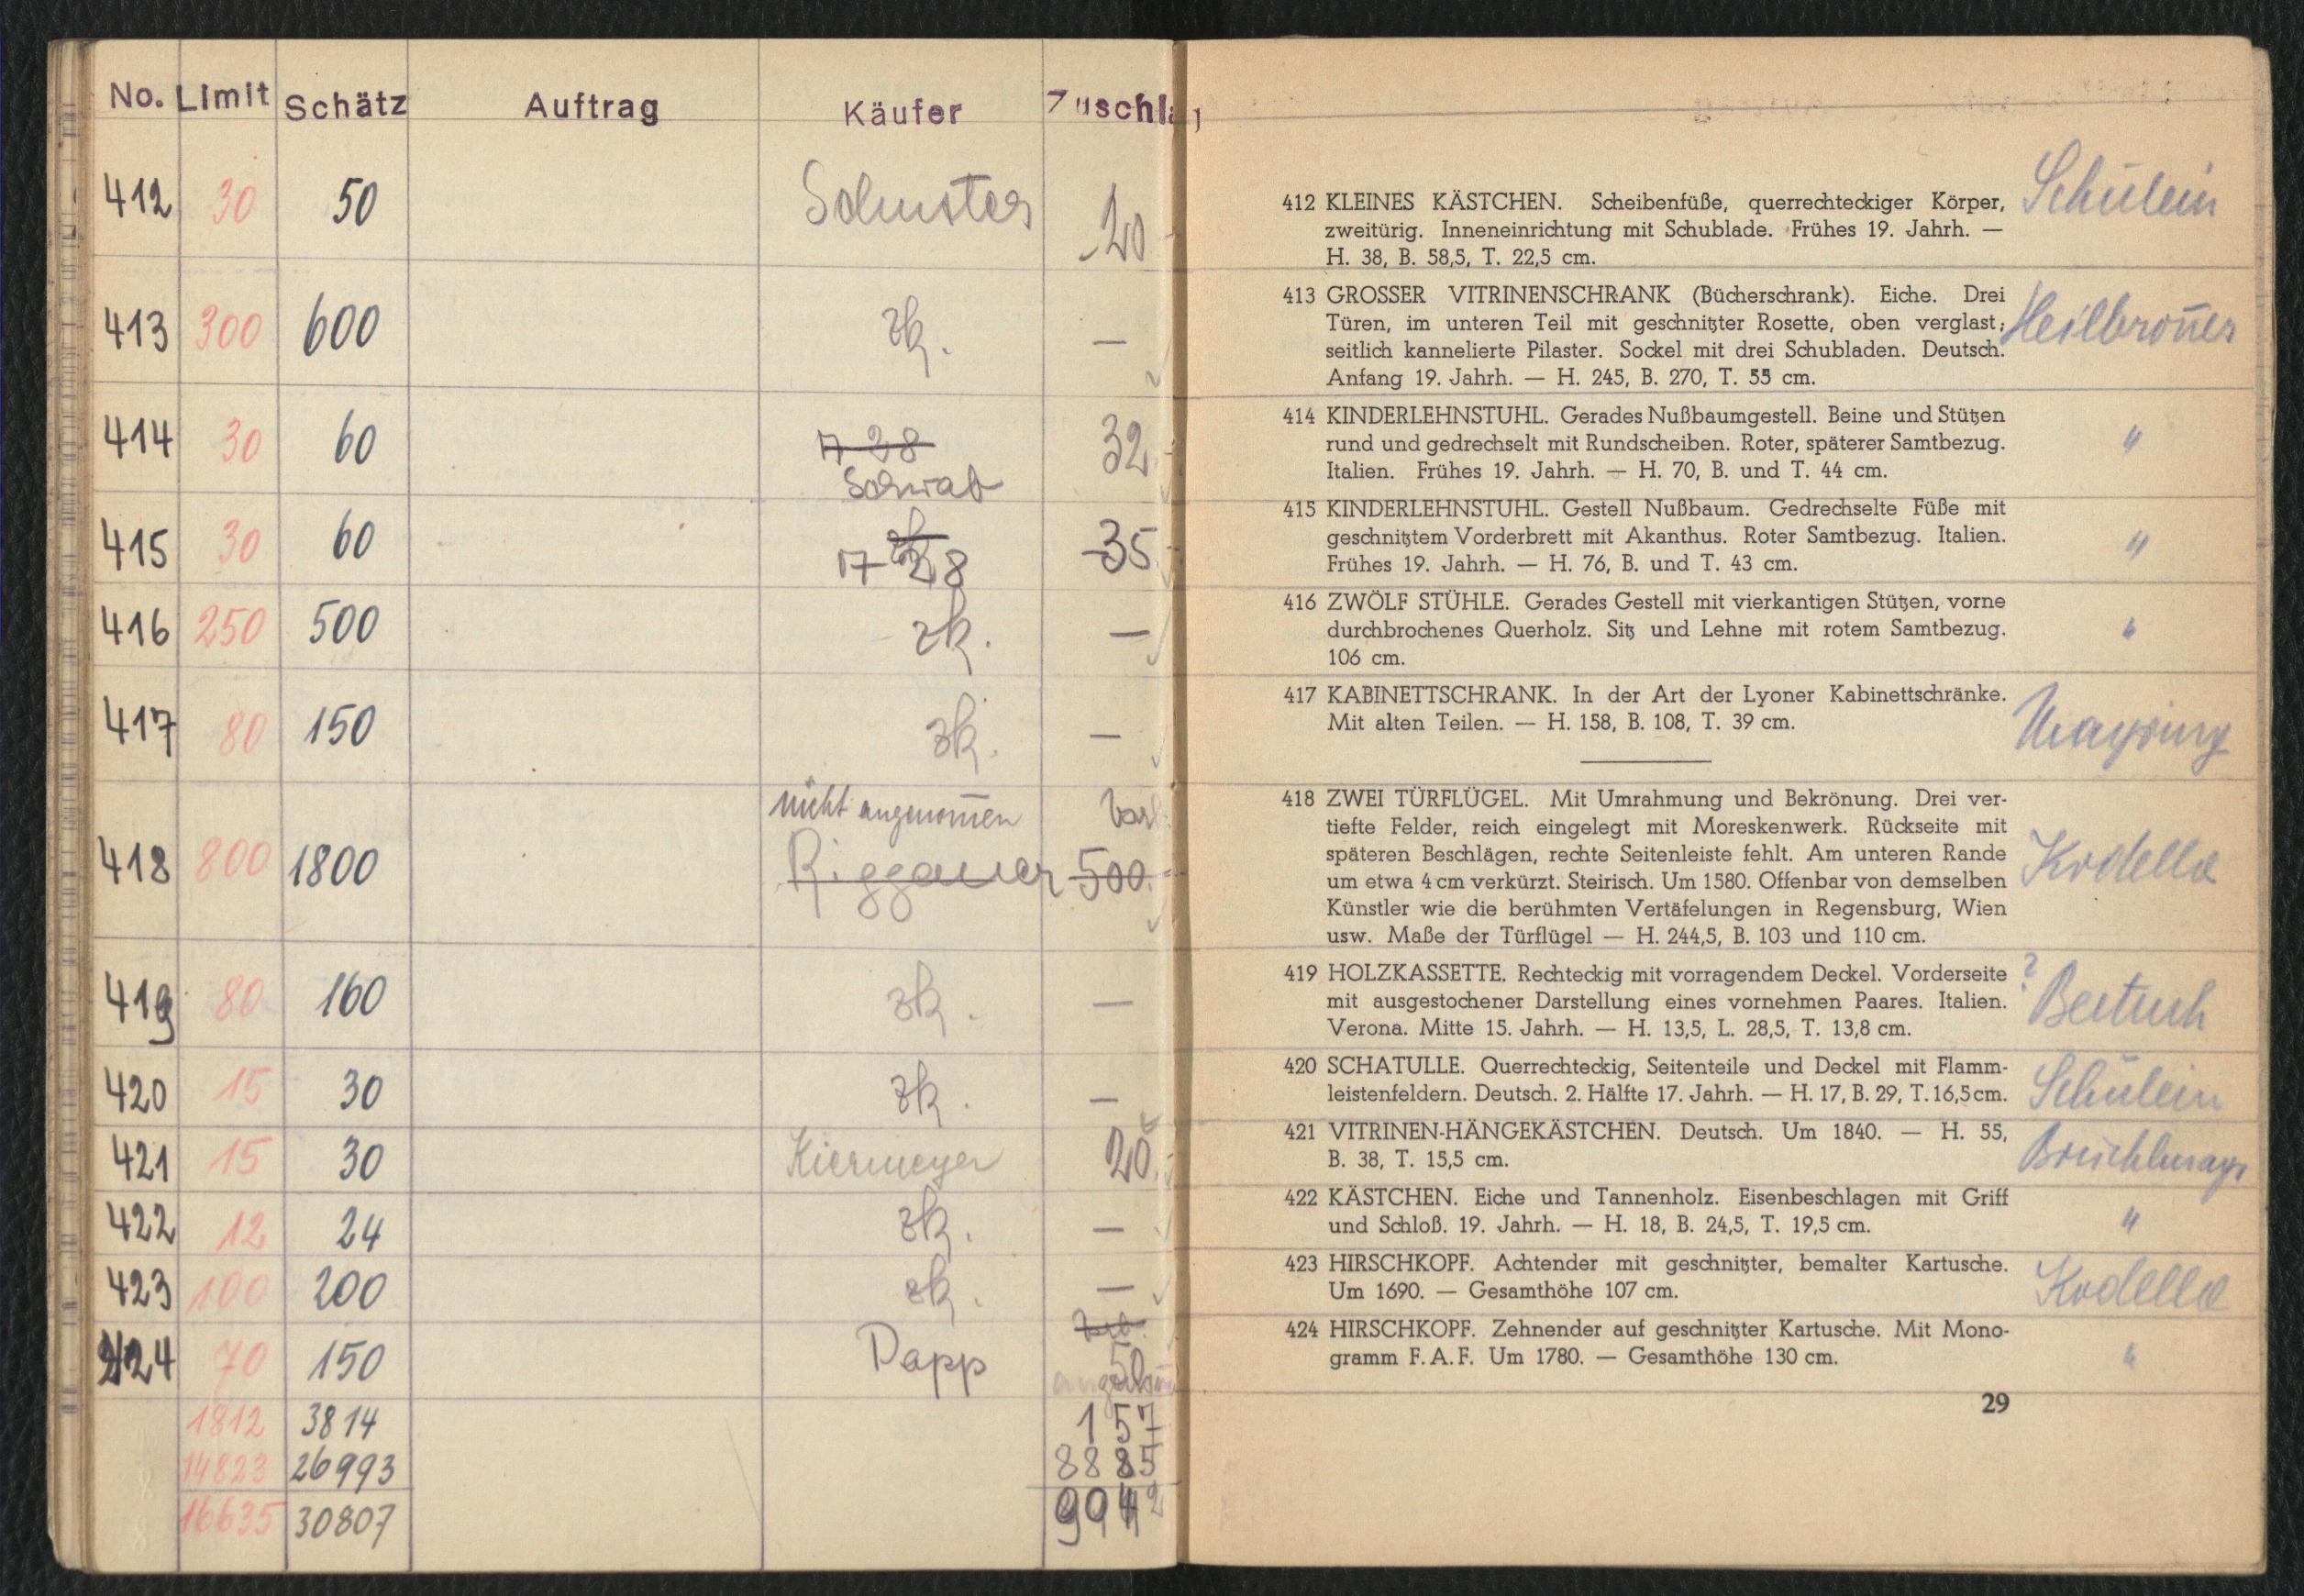 No. Limit Schätz Auftrag Käufer Zuschlag
412 30 50 Schuster 20
413 300 600 zk. —
414 30 60 17 28 32
Schwab
415 30 60 zk 35
17 28
416 250 500 zk. —
417 80 150 zk. —
nicht angenom̅en
418 800 1800 Riggauer 500.
419 80 160 zk. —
420 15 30 zk. —
421 15 30 Kiermeyer 20.
422 12 24 zk. —
423 100 200 zk. —
424 70 150 Papp 50
1812 3814 157
14823 26993 8885
16635 30807 9042
412 KLEINES KÄSTCHEN. Scheibenfüße, querrechteckiger Körper, Schülein
zweitürig. Inneneinrichtung mit Schublade. Frühes 19. Jahrh. —
H. 38, B. 58,5, T. 22,5 cm.
413 GROSSER VITRINENSCHRANK (Bücherschrank). Eiche. Drei
Türen, im unteren Teil mit geschnitzter Rosette, oben verglast; Heilbron̅er
seitlich kannelierte Pilaster. Sockel mit drei Schubladen. Deutsch.
Anfang 19. Jahrh. — H. 245, B. 270, T. 55 cm.
414 KINDERLEHNSTUHL. Gerades Nußbaumgestell. Beine und Stützen
rund und gedrechselt mit Rundscheiben. Roter, späterer Samtbezug. "
Italien. Frühes 19. Jahrh. — H. 70, B. und T. 44 cm.
415 KINDERLEHNSTUHL. Gestell Nußbaum. Gedrechselte Füße mit
geschnitztem Vorderbrett mit Akanthus. Roter Samtbezug. Italien. "
Frühes 19. Jahrh. — H. 76, B. und T. 43 cm.
416 ZWÖLF STÜHLE. Gerades Gestell mit vierkantigen Stützen, vorne
durchbrochenes Querholz. Sitz und Lehne mit rotem Samtbezug. "
106 cm.
417 KABINETTSCHRANK. In der Art der Lyoner Kabinettschränke.
Mit alten Teilen. — H. 158, B. 108, T. 39 cm. Mayring
418 ZWEI TÜRFLÜGEL. Mit Umrahmung und Bekrönung. Drei ver-
tiefte Felder, reich eingelegt mit Moreskenwerk. Rückseite mit
späteren Beschlägen, rechte Seitenleiste fehlt. Am unteren Rande Kodella
um etwa 4 cm verkürzt. Steirisch. Um 1580. Offenbar von demselben
Künstler wie die berühmten Vertäfelungen in Regensburg, Wien
usw. Maße der Türflügel — H. 244,5, B. 103 und 110 cm.
419 HOLZKASSETTE. Rechteckig mit vorragendem Deckel. Vorderseite ?
mit ausgestochener Darstellung eines vornehmen Paares. Italien.
Verona. Mitte 15. Jahrh. — H. 13,5, L. 28,5, T. 13,8 cm.
420 SCHATULLE. Querrechteckig, Seitenteile und Deckel mit Flamm- Schülein
leistenfeldern. Deutsch. 2. Hälfte 17. Jahrh. — H. 17, B. 29, T. 16,5 cm.
421 VITRINEN-HÄNGEKÄSTCHEN. Deutsch. Um 1840. — H. 55,
B. 38, T. 15,5 cm.
422 KÄSTCHEN. Eiche und Tannenholz. Eisenbeschlagen mit Griff
und Schloß. 19. Jahrh. — H. 18, B. 24,5, T. 19,5 cm. "
423 HIRSCHKOPF. Achtender mit geschnitzter, bemalter Kartusche.
Um 1690. — Gesamthöhe 107 cm. Kodella
424 HIRSCHKOPF. Zehnender auf geschnitzter Kartusche. Mit Mono-
gramm F. A. F. Um 1780. — Gesamthöhe 130 cm. "
29